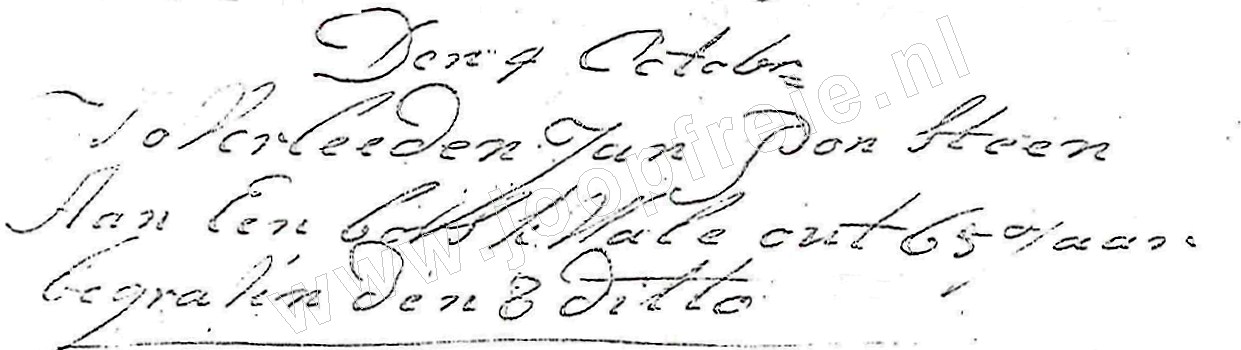 Den 4 Octobr
Is Verleeden Jan Pon Steen
Aan Een out 65 Jaar
begraven den 8 ditto
www.joopfreie.nl